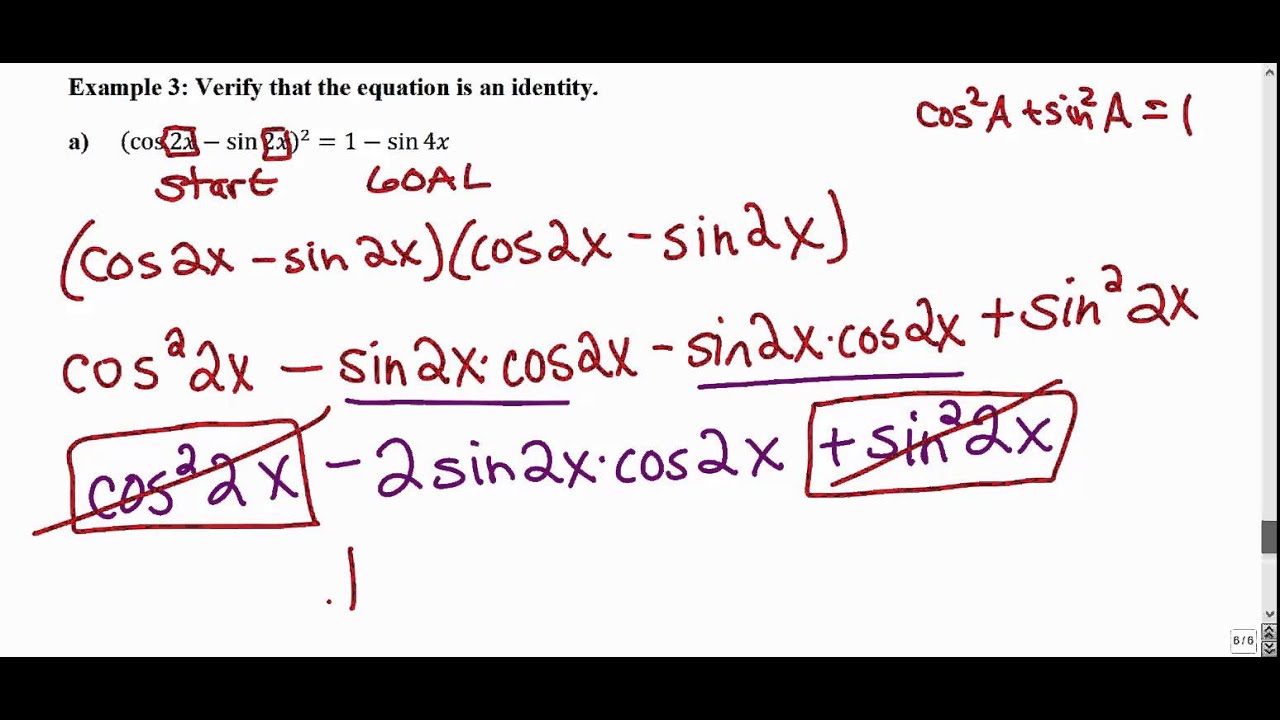 Example 3: Verify that the equation is an identity.
cos²A + sin²A = 1
a) (cos 2x − sin 2x)² = 1 − sin 4x
start GOAL
(cos2x − sin2x)(cos2x − sin2x)
cos²2x − sin2x·cos2x − sin2x·cos2x + sin²2x
cos²2x − 2sin2x·cos2x + sin²2x
1
6/6